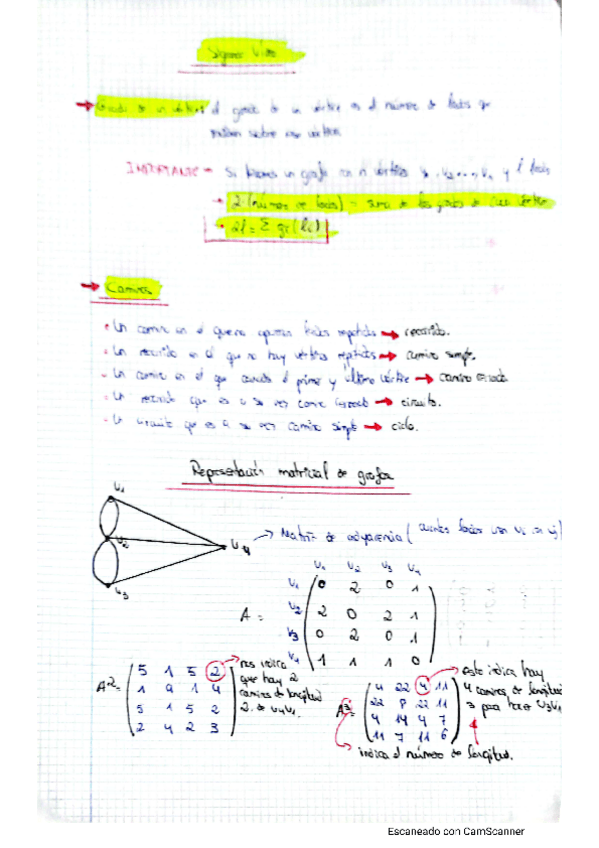 Grado de un vértice: el grado de un vértice es el número de lados que
inciden sobre ese vértice.
IMPORTANTE → Si tenemos un grafo con n vértices v₁, v₂..., vₙ y l lados
→ 2 (número de lados) = suma de los grados de cada vértice
2l = Σ gr(
→ Camino
• Un camino en el que no aparecen lados repetidos → recorrido.
• Un recorrido en el que no hay vértices repetidos → camino simple.
• Un camino en el que coincide el primer y último vértice → camino cerrado
• Un recorrido que es a su vez camino cerrado → circuito.
• Un circuito que es a su vez camino simple → ciclo.
Representación matricial de grafos
v₁
v₂
v₃
v₄
→ Matriz de adyacencia (cuántos lados unen vi con vj)
v₁ v₂ v₃ v₄
A =
v₁ 0 2 0 1
v₂ 2 0 2 1
v₃ 0 2 0 1
v₄ 1 1 1 0
A² =
5 1 5 2
1 9 1 4
5 1 5 2
2 4 2 3
→ nos indica
que hay 2
caminos de longitud
2 de v₄v₁.
A³ =
4 22 4 11
22 8 22 11
4 14 4 7
11 7 11 6
→ este indica hay
4 caminos de longitud
3 para hacer v₃v₁
indica el número de longitud.
Escaneado con CamScanner